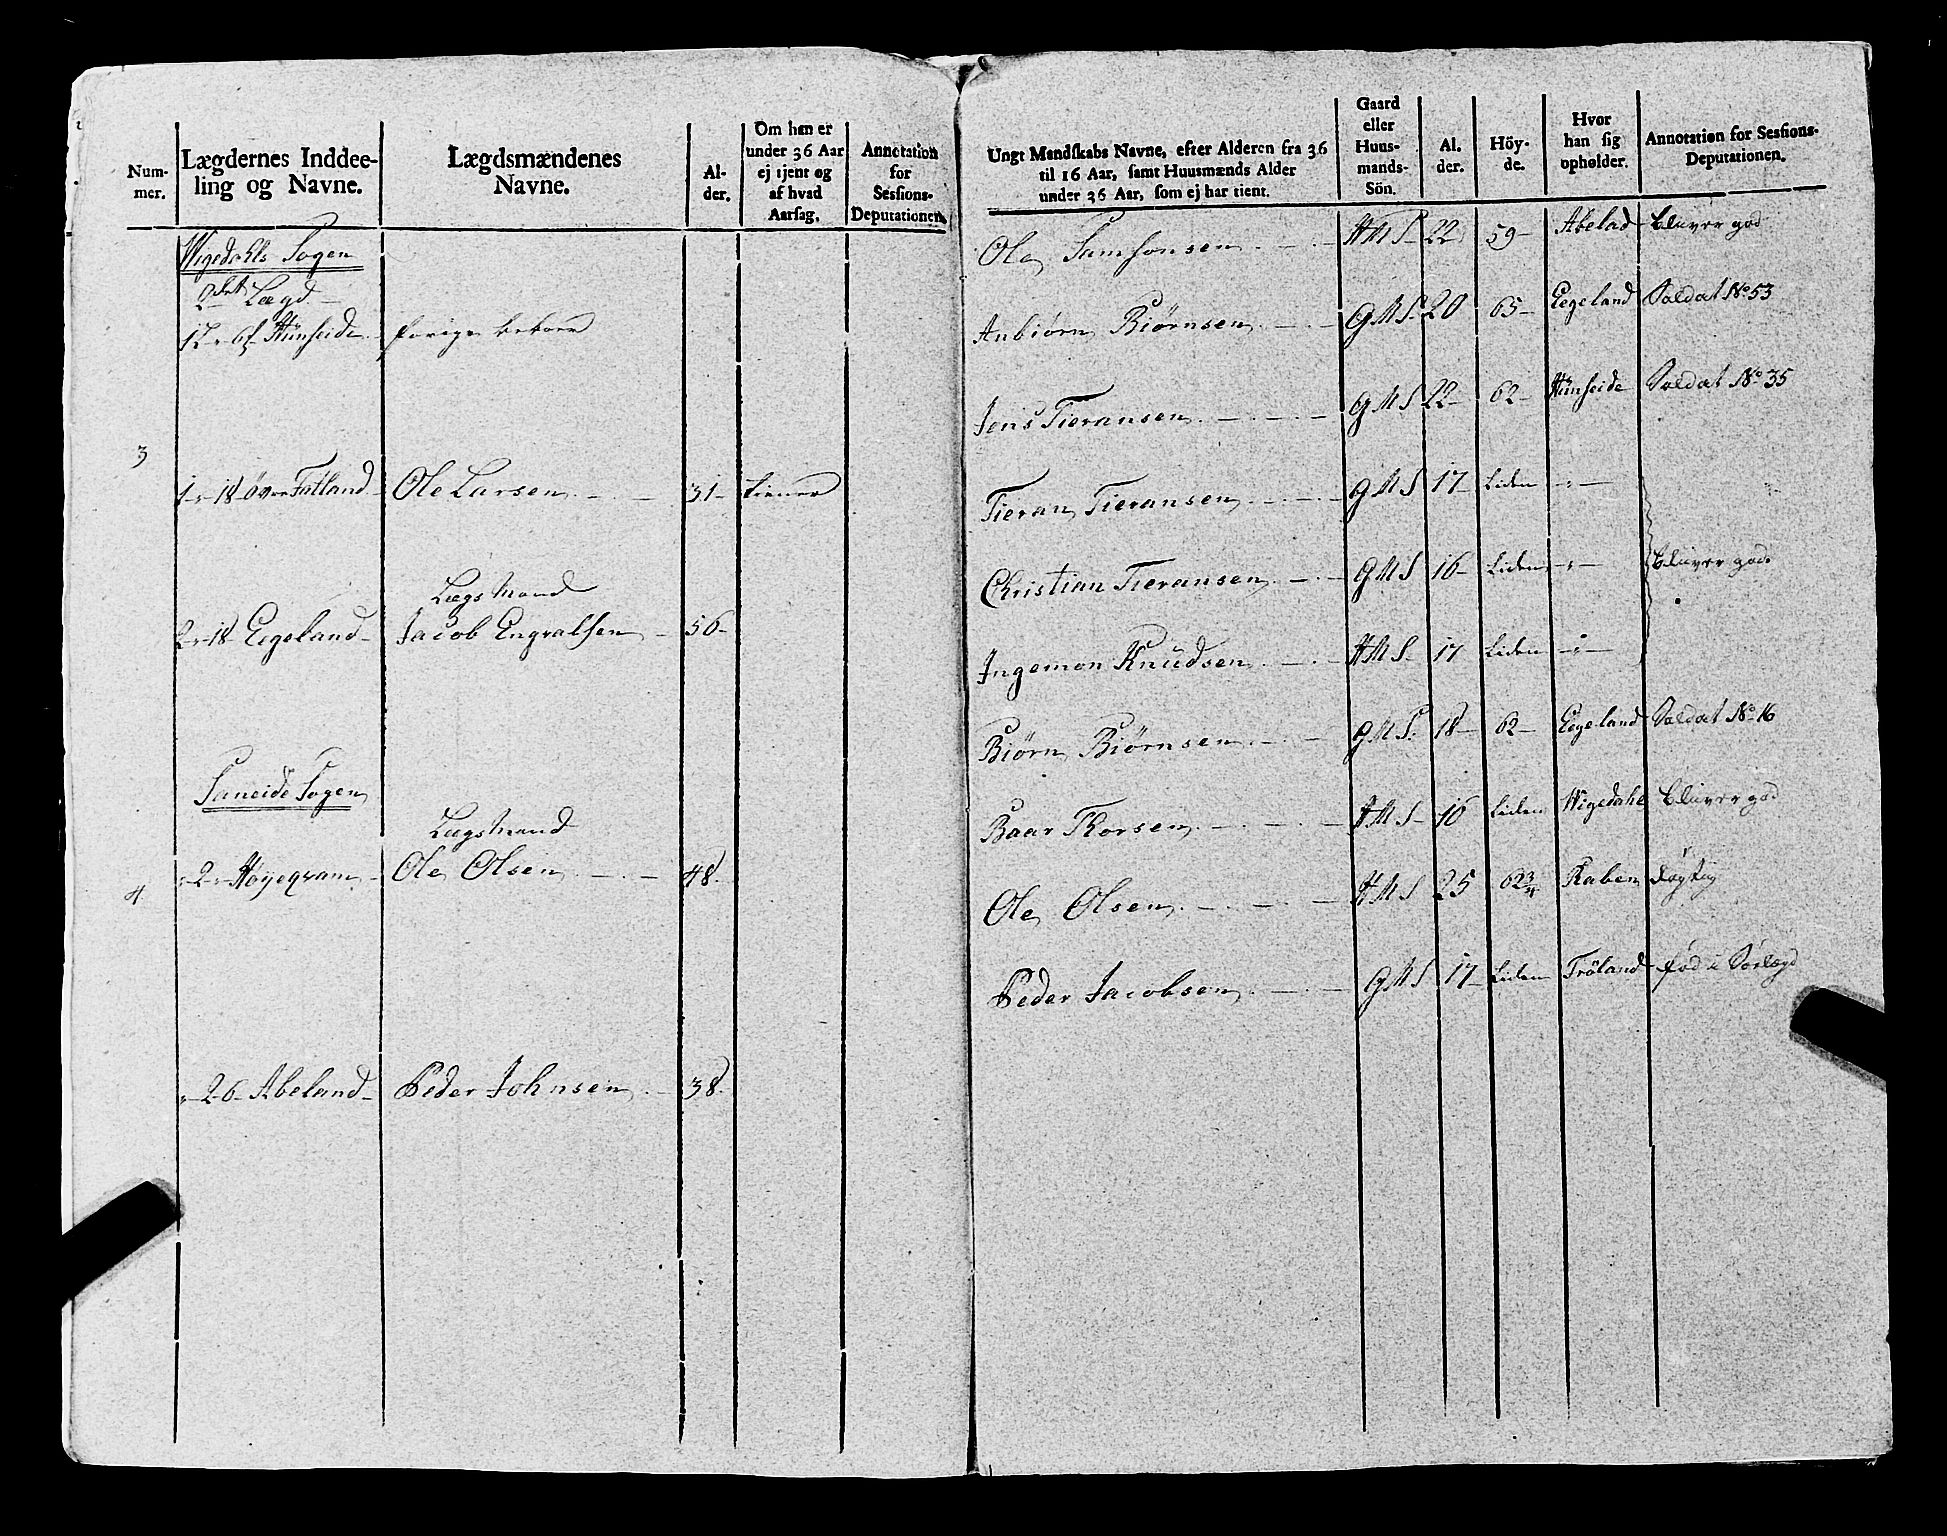 Num-
mer.
Lægdernes Inddee-
ling og Navne.
Lægdsmændenes
Navne.
Al-
der.
Om han er
under 36 Aar
ej tjent og
af hvad
Aarsag.
Annotation
for
Sessions-
Deputationen.
Wigedahls Sogen
2det Lægd
Hünseide
3
1-18 Øvre Fatland Ole Larsen 31 tiener
Lægsmand
2-18 Eegeland Jacob Engvalsen 56
Saueide Sogen
Lægsmand
4 2 Høyeqvam Ole Olsen 48
2-6 Abeland Peder Johnsen 38
Ungt Mandskabs Navne, efter Alderen fra 36
til 16 Aar, samt Huusmænds Alder
under 36 Aar, som ej har tient.
Gaard
eller
Huus-
mands-
Sön.
Al.
der.
Höy-
de.
Hvor
han sig
opholder.
Annotation for Sessions-
Deputationen.
Ole Samsonsen HMS 22 59 Abelad bliver god
Anbiørn Biørnsen GMS 20 65 Eegeland Soldat No 53
Jens Tieransen GMS 22 62 Hünseide Soldat No 35
Tieran Tieransen GMS 17 Liden -"-
Christian Tieransen GMS 16 Liden -"- bliver god
Ingemon Knudsen HMS 17 Liden -"-
Biørn Biørnsen GMS 18 62 Eegeland Soldat No 16
Baar Thorsen HMS 16 Liden Wigedahl bliver god
Ole Olsen HMS 25 62 3/4 Raben døgtig
Peder Jacobsen GMS 17 Liden Trøland